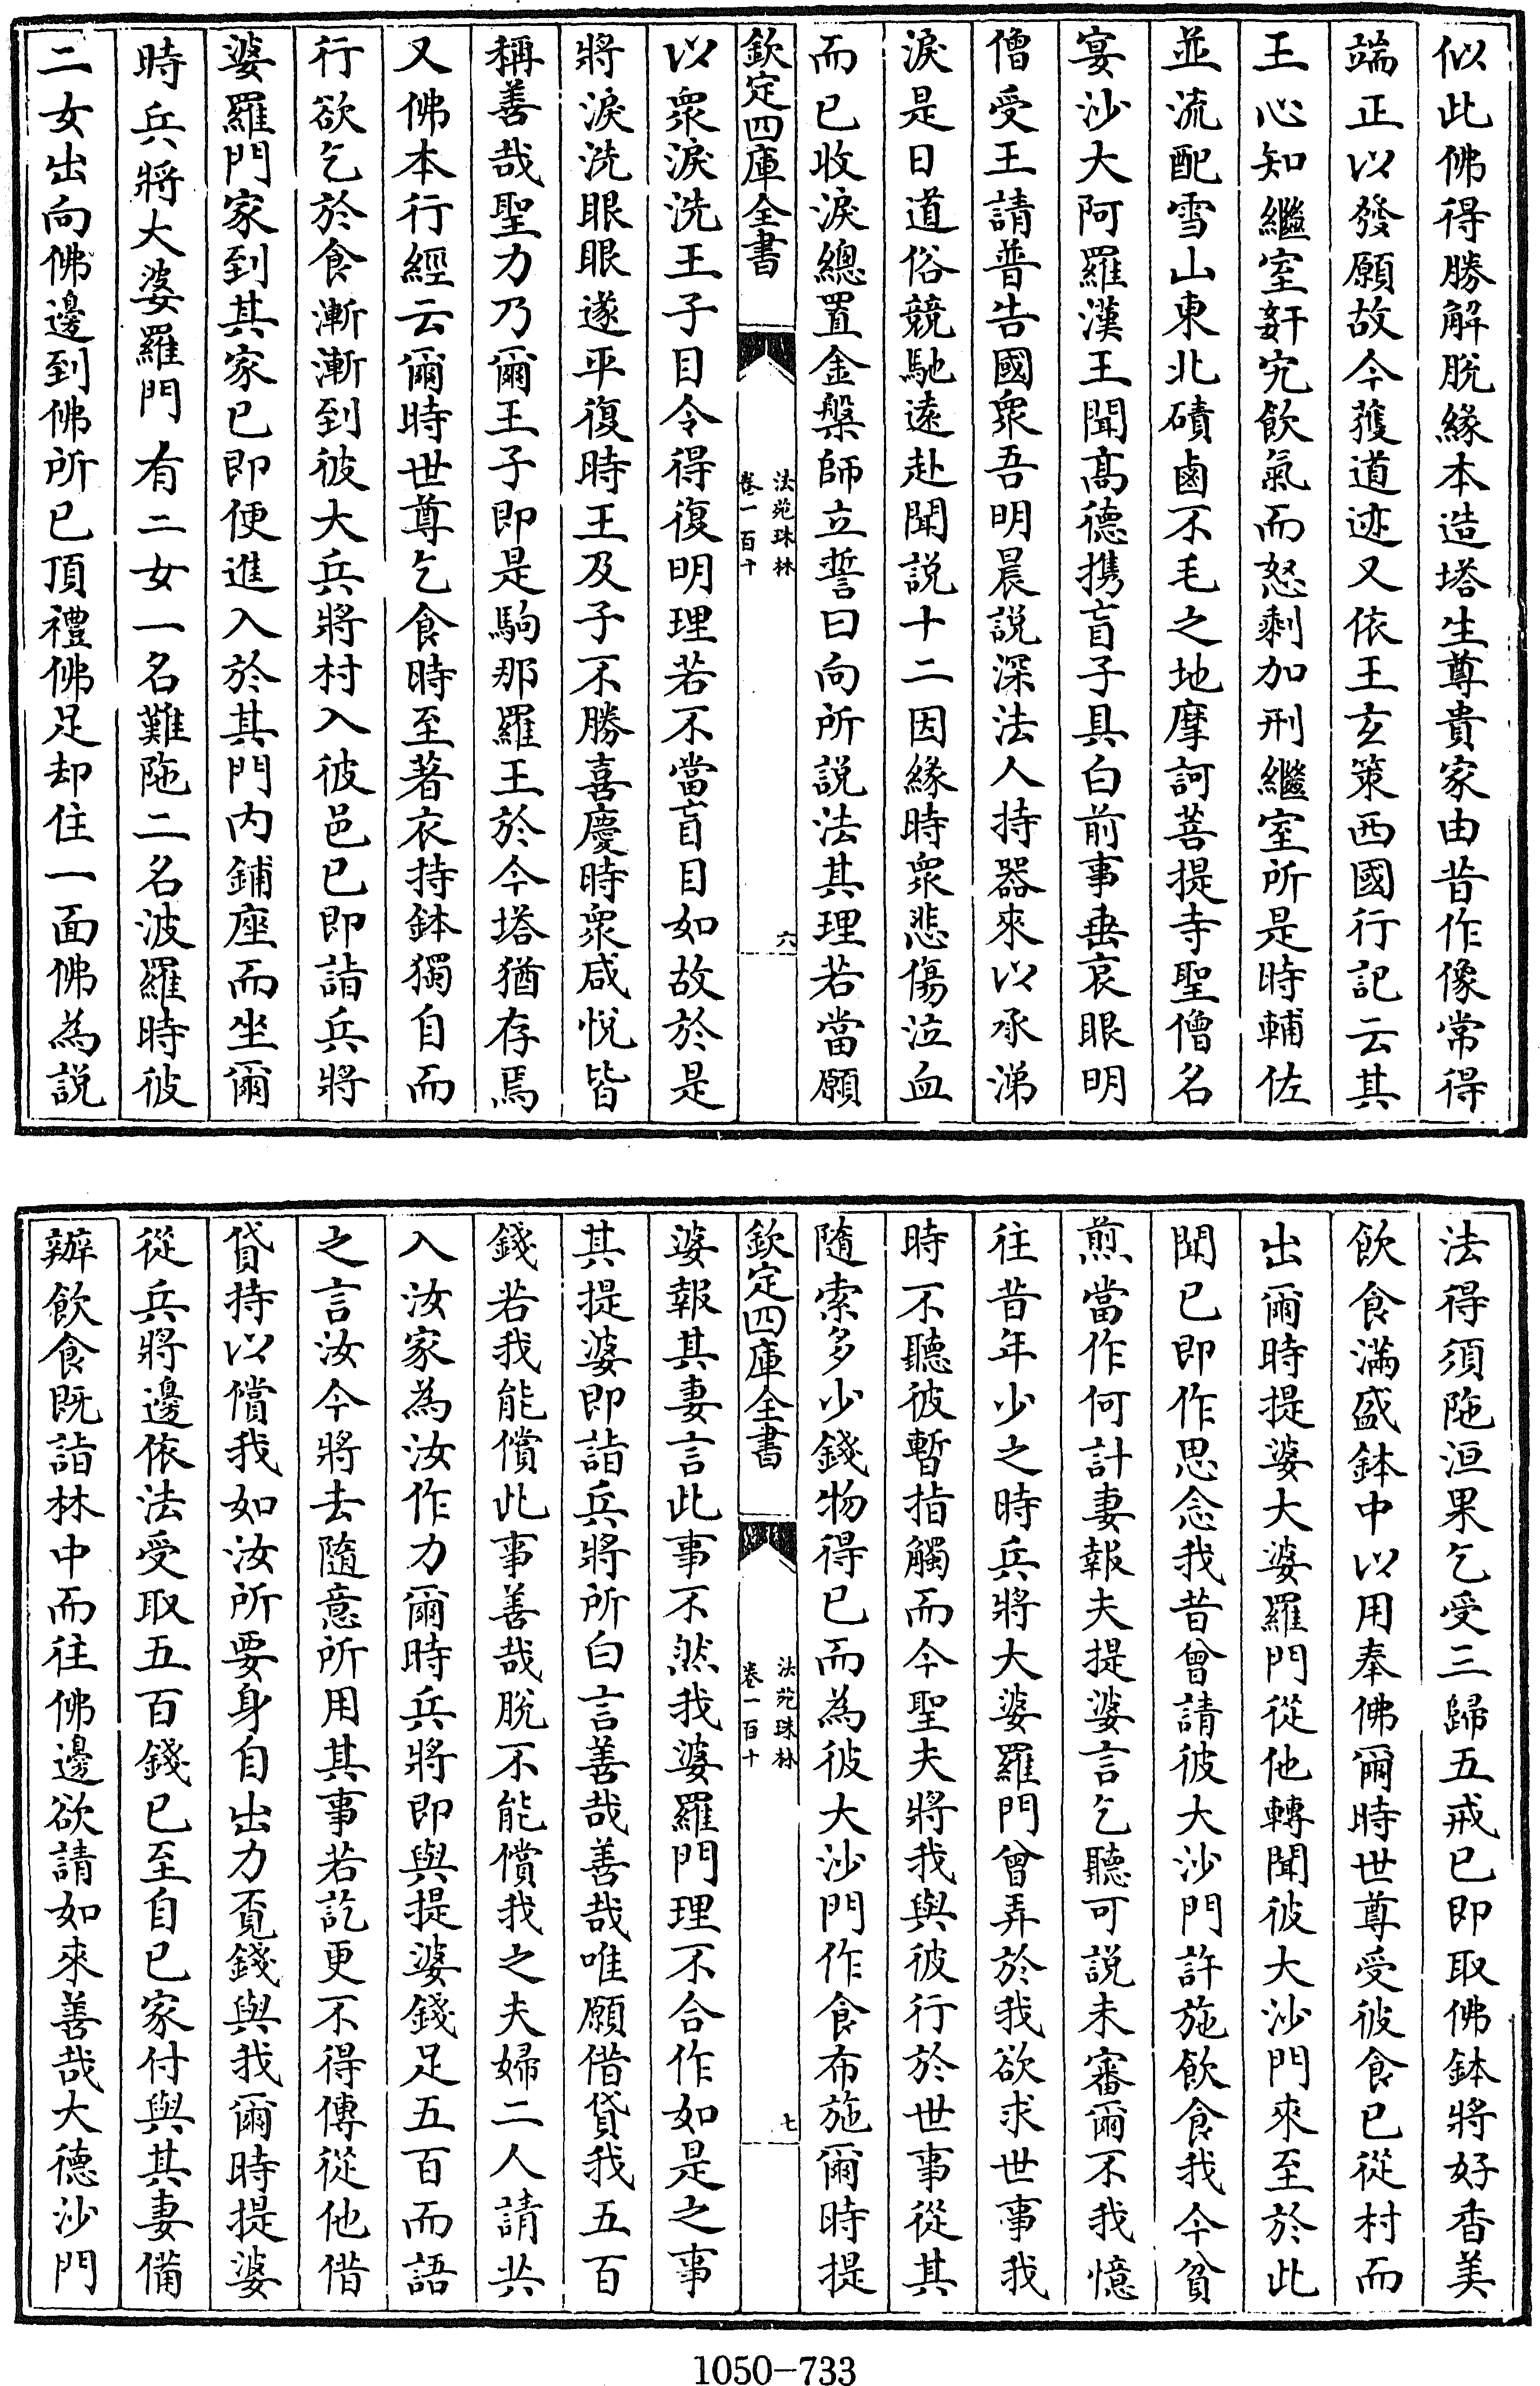 似此佛得勝解脱緣本造塔生尊貴家由昔作像常得
端正以發願故今獲道迹又依王玄策西國行記云其
王心知繼室姧宄飲氣而怒剩加刑繼室所是時輔佐
並流配雪山東北磧鹵不毛之地摩訶菩提寺聖僧名
宴沙大阿羅漢王聞髙德携盲子具白前事垂哀眼明
僧受王請普告國衆吾明晨説深法人持器來以承涕
淚是日道俗競馳遠赴聞説十二因緣時衆悲傷泣血
而已收淚總置金槃師立誓曰向所説法其理若當願
欽定四庫全書
法苑珠林
卷一百十
六
以衆淚洗王子目令得復明理若不當盲目如故於是
將淚洗眼眼遂平復時王及子不勝喜慶時衆咸悦皆
稱善哉聖力乃爾王子即是駒那羅王於今塔猶存焉
又佛本行經云爾時世尊乞食時至著衣持鉢獨自而
行欲乞於食漸漸到彼大兵將村入彼邑已即詣兵將
婆羅門家到其家已即便進入於其門内鋪座而坐爾
時兵將大婆羅門有二女一名難陁二名波羅時彼
二女出向佛邊到佛所已頂禮佛足却住一面佛為説
法得須陁洹果乞受三歸五戒已即取佛鉢將好香美
飲食滿盛鉢中以用奉佛爾時世尊受彼食已從村而
出爾時提婆大婆羅門從他轉聞彼大沙門來至於此
聞已即作思念我昔曾請彼大沙門許施飲食我今貧
煎當作何計妻報夫提婆言乞聽可説未審爾不我憶
往昔年少之時兵將大婆羅門曾弄於我欲求世事我
時不聽彼暫指觸而今聖夫將我與彼行於世事從其
隨索多少錢物得已而為彼大沙門作食布施爾時提
欽定四庫全書
法苑珠林
卷一百十
七
婆報其妻言此事不然我婆羅門理不合作如是之事
其提婆即詣兵將所白言善哉善哉唯願借貸我五百
錢若我能償此事善哉脱不能償我之夫婦二人請共
入汝家為汝作力爾時兵將即與提婆錢足五百而語
之言汝今將去隨意所用其事若訖更不得傳從他借
貸持以償我如汝所要身自出力覔錢與我爾時提婆
從兵將邊依法受取五百錢已至自已家付與其妻備
辦飲食既詣林中而往佛邊欲請如來善哉大德沙門
1050-733